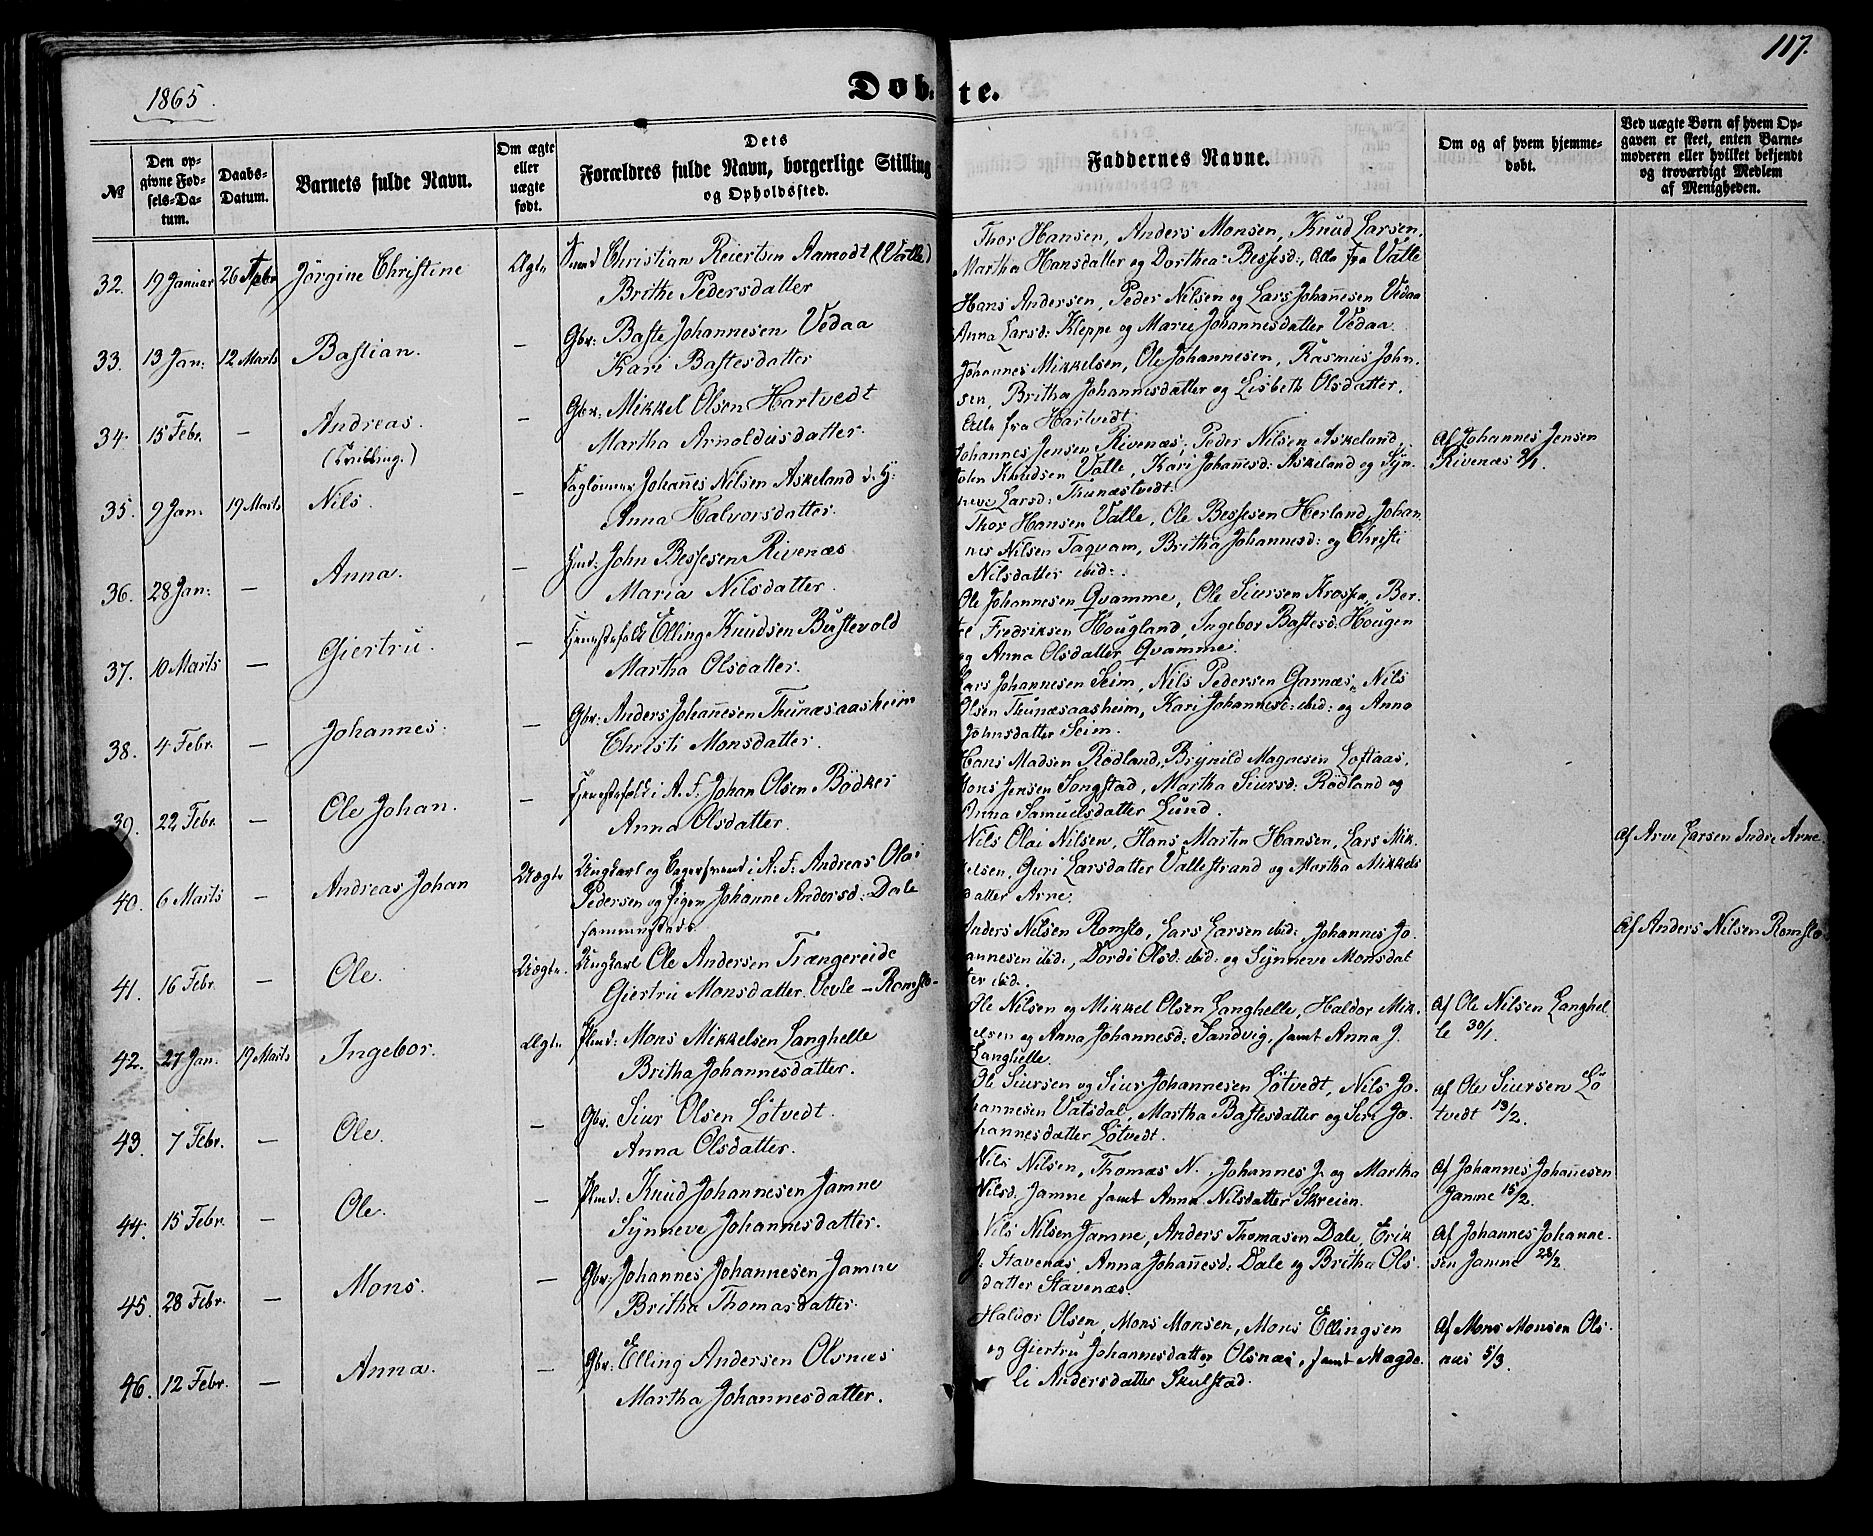 117.
1865.
Døbte.
№
Den opgivne Fødsels-Datum.
Daabs-Datum.
Barnets fulde Navn.
Om ægte eller uægte født.
Dets Forældres fulde Navn, borgerlige Stilling og Opholdssted.
Faddernes Navne.
Om og af hvem hjemmedøbt.
Ved uægte Børn af hvem Opgaven er skeet, enten Barnemoderen eller hvilket bekjendt og troværdigt Medlem af Menigheden.
32. 19 Januar 26 Febr Jørgine Christine Ægte Christian Reiertsen Aamodt (Valle)
Brithe Pedersdatter
Thor Hansen, Anders Monsen, Knud Larsen,
Martha Hansdatter og Dorthea Bessesd:, Alle fra Valle
33. 13 Jan: 12 Marts Bastian. — Gbr: Baste Johannesen Vedaa
Kari Bastesdatter
Hans Andersen, Peder Nilsen og Lars Johannesen Vedaa
Anna Larsd: Kleppe og Marie Johannesdatter Vedaa.
34. 15 Febr. — Andreas. — Gbr. Mikkel Olsen Hartvedt
(Tvilling.) Martha Arnoldusdatter.
Johannes Mikkelsen, Ole Johannesen, Rasmus John-
sen, Britha Johannesdatter og Lisbeth Olsdatter,
Alle fra Hartvedt.
35. 9 Jan: 19 Marts Nils. — Johannes Nilsen Askeland
Anna Halvorsdatter.
Johannes Jensen Rivenæs, Peder Nilsen Askeland,
John Knudsen Valle, Kari Johannesd: Askeland og Syn-
neve Larsd: Thunæstvedt.
Af Johannes Jensen
Rivenæs 9/1.
36. 28 Jan: — Anna. — John Bessesen Rivenæs
Maria Nilsdatter.
Thor Hansen Valle, Ole Bessesen Herland, Johan
nes Nilsen Taqvam, Britha Johannesd: og Christi
Nilsdatter ibid:
37. 10 Marts — Giertru. — Tjenestefolk Elling Knudsen Bustevold
Martha Olsdatter.
Ole Johannesen Qvamme, Ole Siursen Krossen, Ber-
tel Fredriksen Hougland, Ingebor Bastesd: Hougen
og Anna Olsdatter Qvamme.
38. 4 Febr. — Johannes. — Gbr: Anders Johannesen Thunæsaasheim
Christi Monsdatter.
Lars Johannesen Seim, Nils Pedersen Garnæs, Nils
Olsen Thunæsaasheim, Kari Johannesd: ibid: og Anna
Johnsdatter Seim.
39. 22 Febr. — Ole Johan. — Tjenestefolk i A. F. Johan Olsen Bødker
Anna Olsdatter.
Hans Madsen Rødland, Brynild Magnesen Loftaas,
Mons Jensen Songstad, Martha Siursd: Rødland og
Anna Samuelsdatter Lund.
40. 6 Marts — Andreas Johan Uægte Ungkarl og i A. F. Andreas Olai
Pedersen og Pigen Johanne Andersd: Dale
sammesteds.
Nils Olai Nilsen, Hans Martin Hansen, Lars Mik-
kelsen, Guri Larsdatter Vallestrand og Martha Mikkels
datter Arne.
Af Arve Larsen Indre Arne
41. 16 Febr. — Ole. Uægte. Ungkarl Ole Andersen Trængereide
Giertru Monsdatter — Romslo.
Anders Nilsen Romslo, Lars Larsen ibid:, Johannes Jo-
hannesen ibid:, Dordi Olsd: ibid: og Synneve Monsdat
ter ibid.
Af Anders Nilsen Romslo
42. 27 Jan. 19 Marts Ingebor. Ægte Hmd: Mons Mikkelsen Langhelle
Britha Johannesdatter.
Ole Nilsen og Mikkel Olsen Langhelle, Haldor Mik-
kelsen og Anna Johannesd: Sandvig, samt Anna J.
Langhelle.
Af Ole Nilsen Langhel
le 30/1.
43. 7 Febr. — Ole. — Gbr. Siur Olsen Løtvedt.
Anna Olsdatter.
Ole Siursen og Siur Johannesen Løtvedt, Nils Jo-
hannesen Vatsdal, Martha Bastesdatter og Seri Jo-
hannesdatter Løtvedt.
Af Ole Siursen Lø
tvedt 13/2.
44. 15 Febr. — Ole. — Hmd: Knud Johannesen Jamne
Synneve Johannesdatter.
Nils Nilsen, Thomas N., Johannes J. og Martha
Nilsd. Jamne samt Anna Nilsdatter Skreien.
Af Johannes Johannesen
Jamne 15/2.
45. 28 Febr. — Mons. — Gbr: Johannes Johannesen Jamne
Britha Thomasdatter.
Nils Nilsen Jamne, Anders Thomasen Dale, Erik
J. Stavenæs, Anna Johannesd: Dale og Britha Ols-
datter Stavenæs.
Af Johannes Johanne-
sen Jamne 28/2.
46. 12 Febr. — Anna. — Gbr: Elling Andersen Olsnæs
Martha Johannesdatter.
Haldor Olsen, Mons Monsen, Mons Ellingsen
og Giertru Johannesdatter Olsnæs, samt Magde-
li Andersdatter Skulstad.
Af Mons Monsen Ols-
næs 5/3.